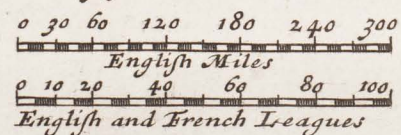 0 30 60 120 180 240 300
Engliſh Miles
0 10 20 40 60 80 100
Engliſh and French Leagues